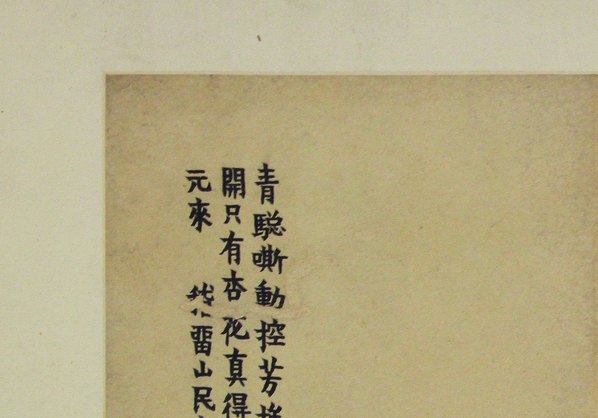 青騘嘶動控芳
開只有杏花真得
元來 留山民